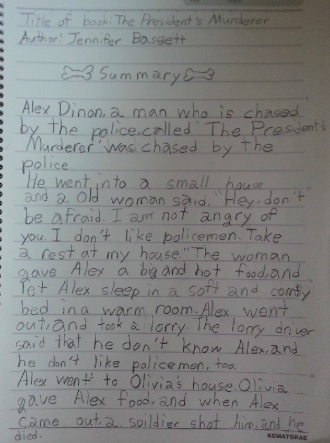 Title of book: The President's Murderer
Author: Jennifer Bassett
Summary
Alex Dinon, a man who is chased
by the police, called 'The President's
Murderer' was chased by the
police
He went into a small house
and a old woman said, "Hey, don't
be afraid. I am not angry of
you. I don't like policemen. Take
a rest at my house." The woman
gave Alex a big and hot food, and
let Alex sleep in a soft and comfy
bed in a warm room. Alex went
out, and took a lorry. The lorry driver
said that he don't know Alex, and
he don't like policemen, too.
Alex went to Olivia's house. Olivia
gave Alex food, and when Alex
came out, a soildier shot him, and he
died.
KOMATORAE